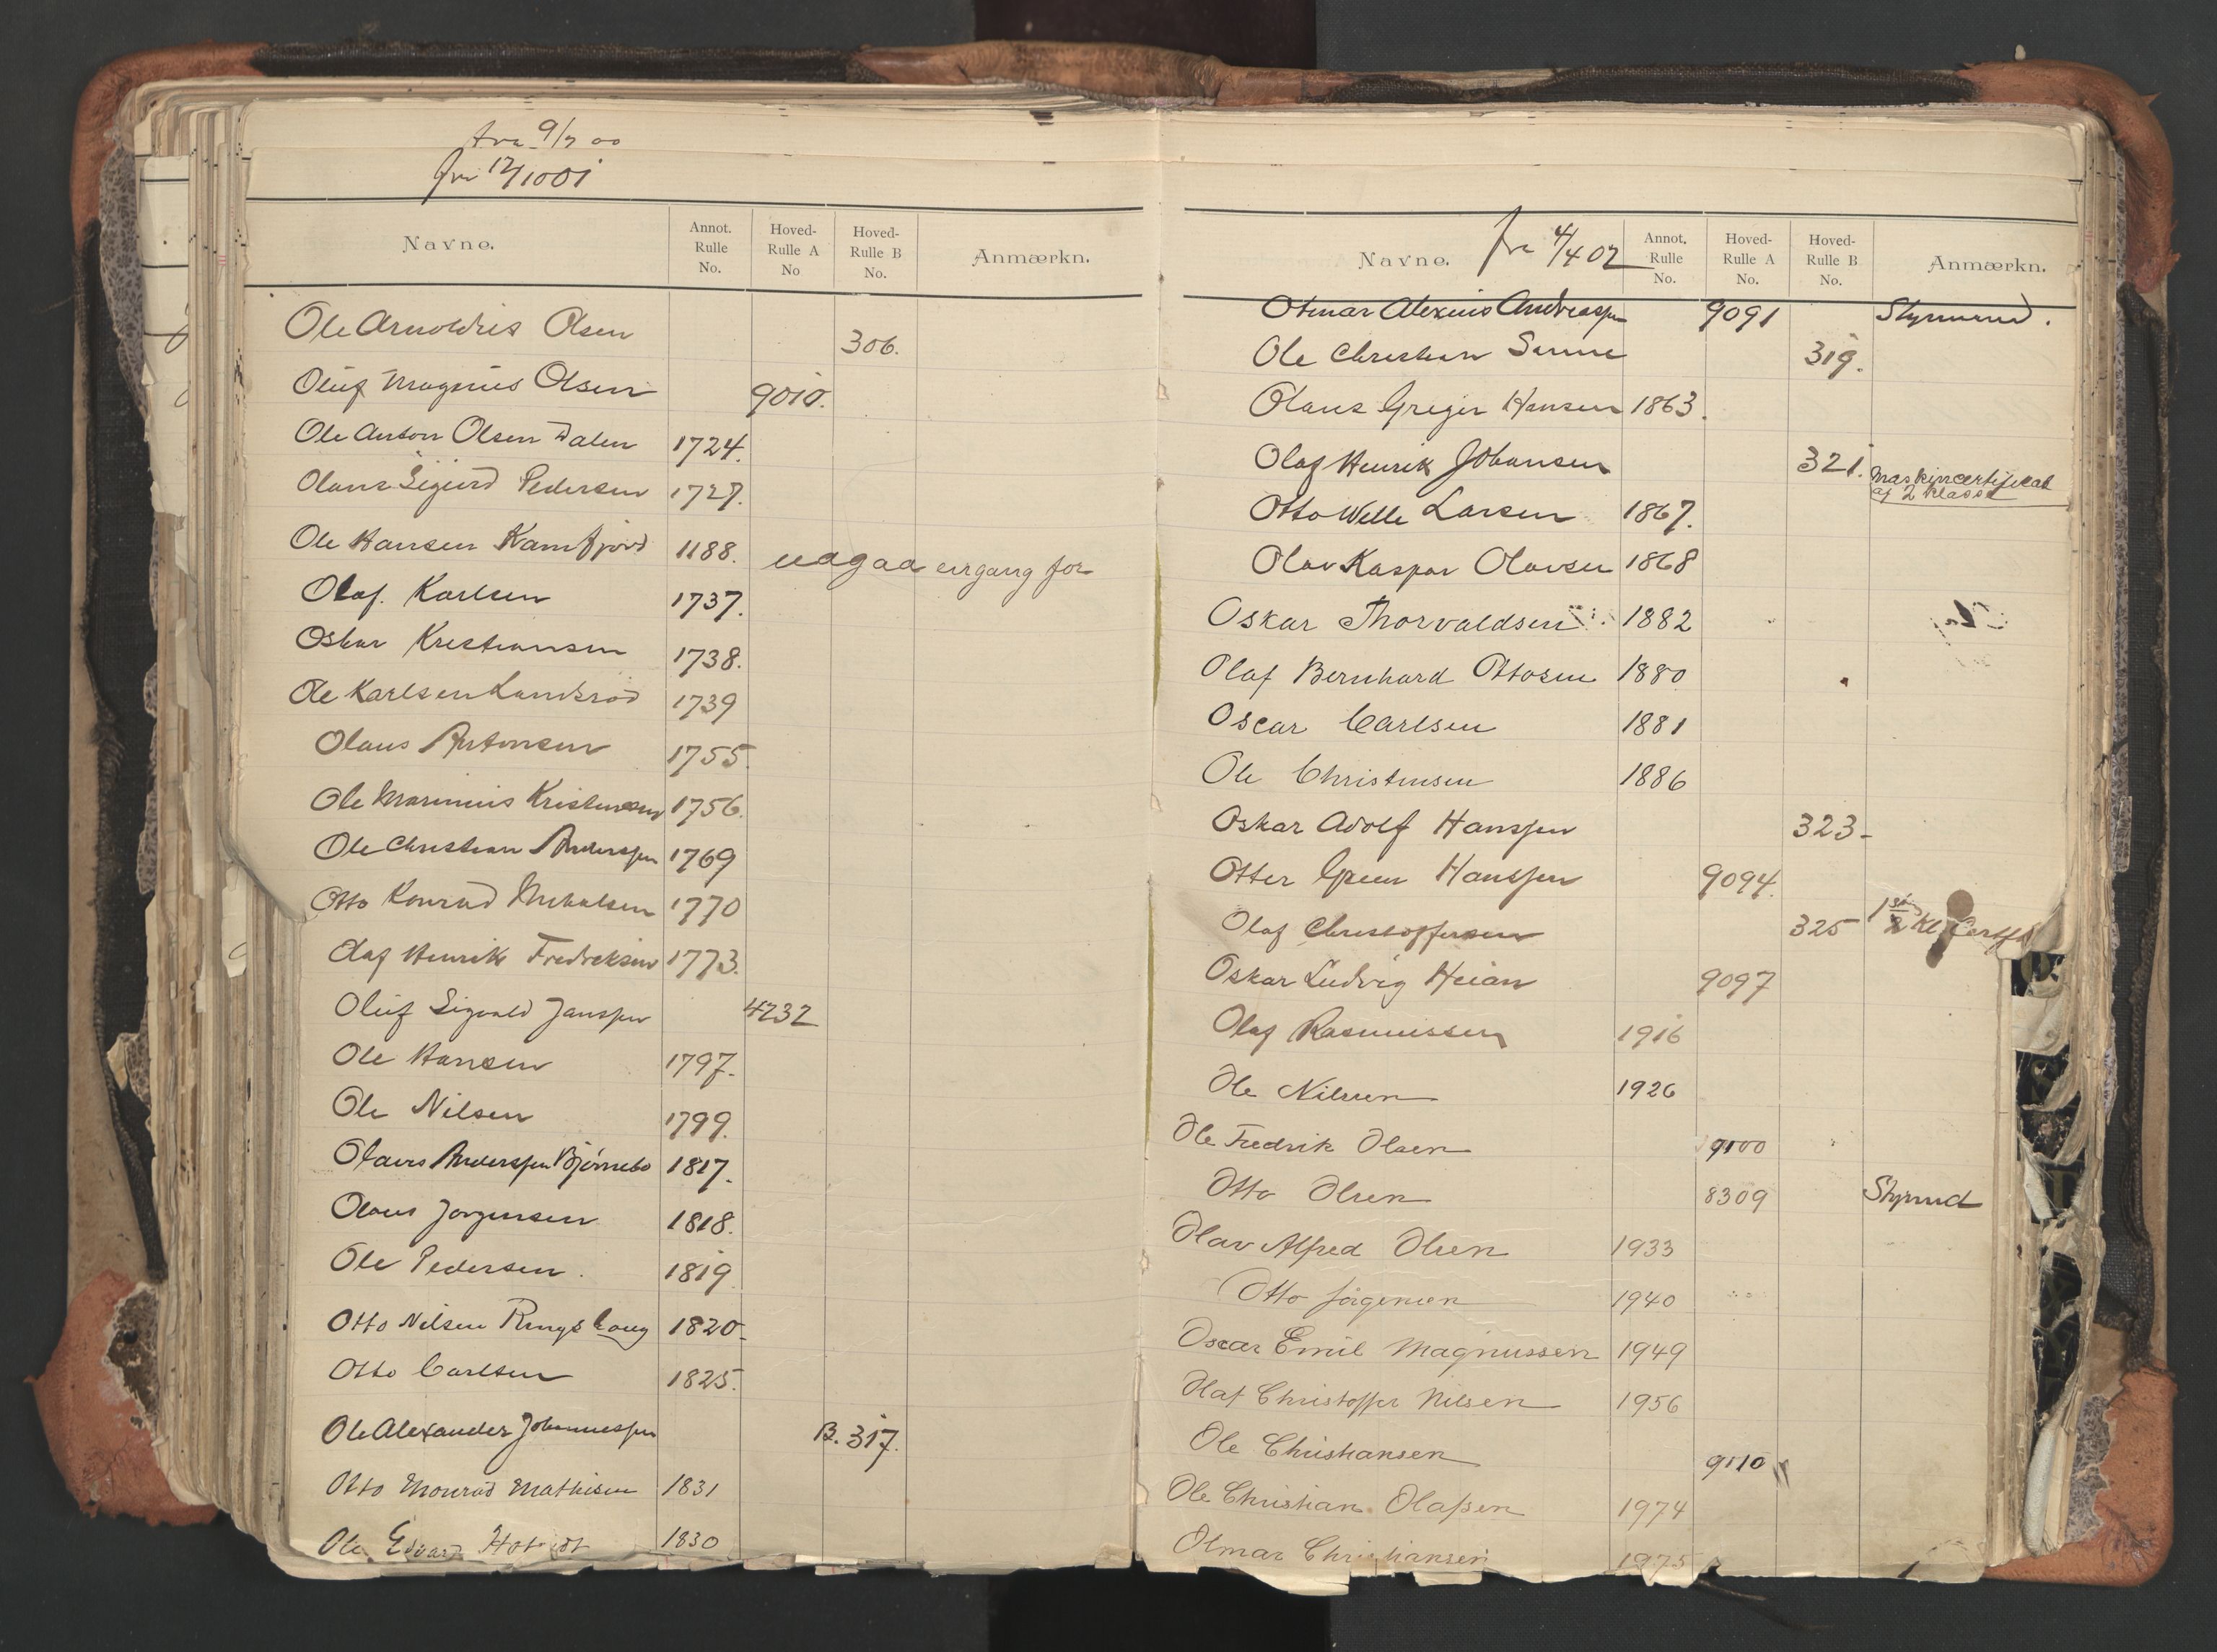 fra 9/7 00
fra 12/10 01
Navne. Annot. Rulle No. Hoved-Rulle A No Hoved-Rulle B No. Anmærkn.
Ole Arnoldus Olsen 306.
Oluf Magnus Olsen 9010.
Ole Anton Olsen Dalen 1724.
Olaus Sigurd Pedersen 1727.
Ole Hansen Kamfjord 1188. udgaa engang før
Olaf Karlsen 1737.
Oskar Kristiansen 1738.
Ole Karlsen Landsrød 1739
Olaus Antonsen 1755.
Ole Marinius Kristensen 1756.
Ole Christian Anderssen 1769
Otto Konrad 1770
Olaf Henrik Fredriksen 1773.
Oluf Sigvald Janssen 4232
Ole Hansen 1797.
Ole Nilsen 1799.
Olaus Anderssen Bjørnebo 1817.
Olaus Jørgensen 1818.
Ole Pedersen. 1819
Otto Nilsen Ringshaug 1820
Otto Carlsen 1825.
Ole Alexander Johannessen B. 317.
Otto Monrad Mathisen 1831
Ole Edvard 1830
fra 4/4 02
Navne. Annot. Rulle No. Hoved-Rulle A No. Hoved-Rulle B No. Anmærkn.
Otmar Alexius Andreassen 9091 Styrmand.
Ole Christian 319.
Olaus Greger Hansen 1863.
Olaf Henrik Johansen 321. Maskincertifikat
af 2 Klasse
Otto Welle Larsen 1867.
Olav Kaspar Olavsen 1868
Oskar Thorvaldsen 1882
Olaf Bernhard Ottosen 1880
Oscar Carlsen 1881
Ole Christensen 1886
Oskar Adolf Hanssen 323-
Otter Green Hanssen 9094.
Olaf Christoffersen 325 1ste Kl Certf
Oskar Ludvig Heian 9097
Olaf Rasmussen 1916
Ole Nilsen 1926
Ole Fredrik Olsen 9100
Otto Olsen 8309 Styrmd
Olav Alfred Olsen 1933
Otto Jörgensen 1940
Oscar Emil Magnussen 1949
Olaf Christoffer Nilsen 1956
Ole Christiansen 9110
Ole Christian Olafsen 1974
Olmar Christiansen 1975